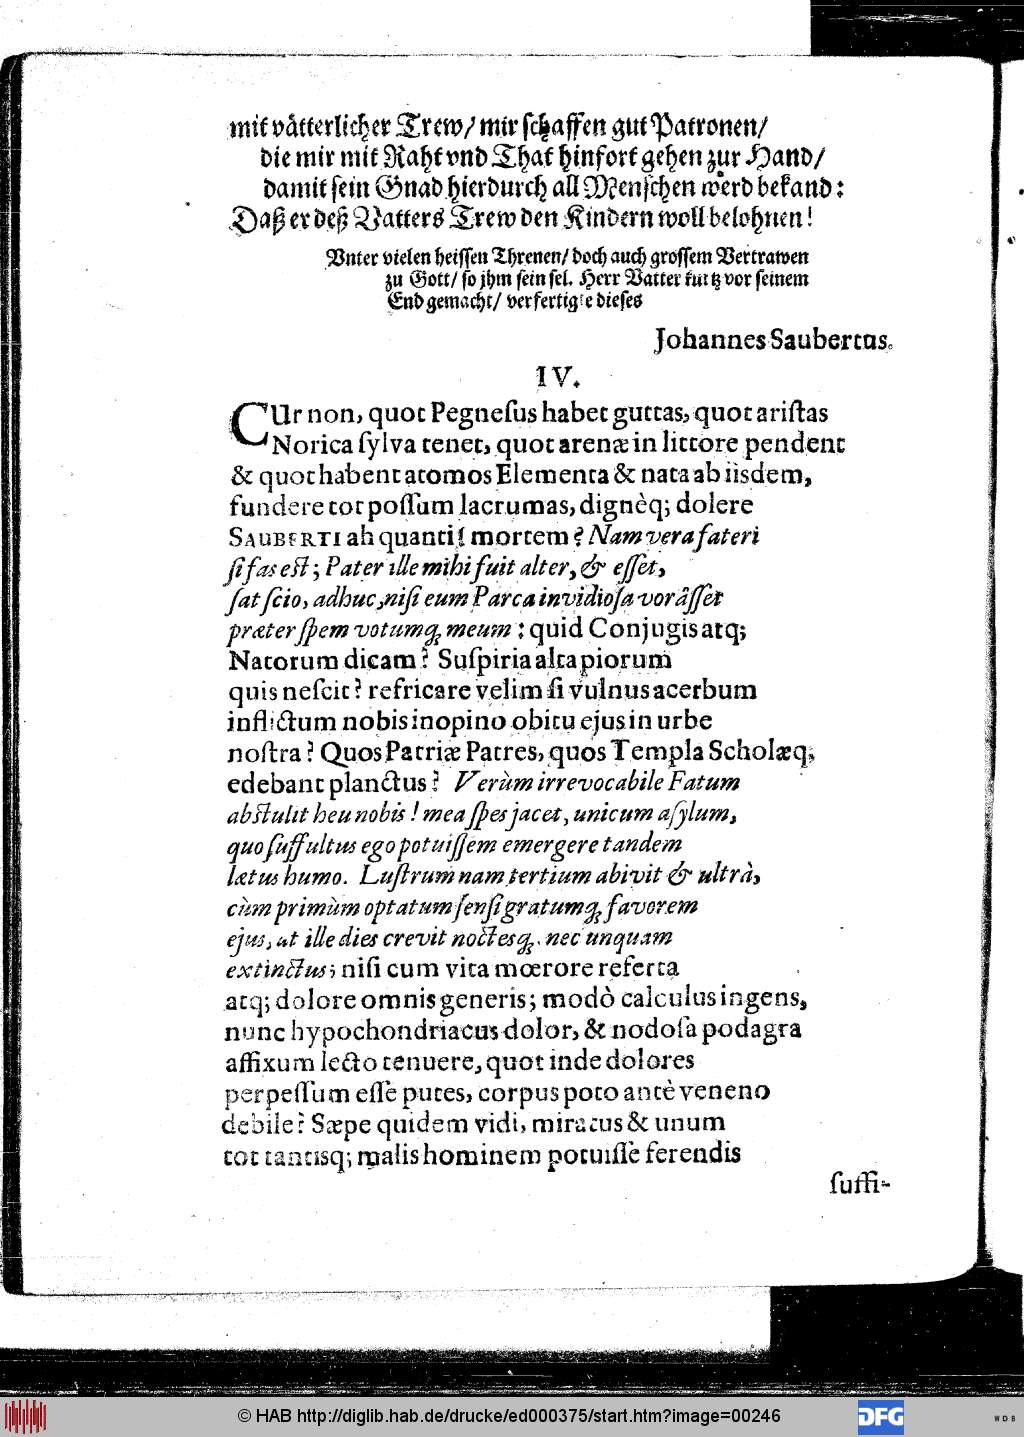 mit vätterlicher Trew/ mir schaffen gut Patronen/
die mir mit Raht vnd That hinfort gehen zur Hand/
damit sein Gnad hierdurch all Menschen werd bekand:
Daß er deß Vatters Trew den Kindern woll belohnen!
Vnter vielen heissen Threnen/ doch auch grossem Vertrawen
zu Gott/ so jhm sein sel. Herr Vatter kurtz vor seinem
End gemacht/ verfertigte dieses
Johannes Saubertus.
IV.
CUr non, quot Pegnesus habet guttas, quot aristas
Norica sylva tenet, quot arenæ in littore pendent
& quot habent atomos Elementa & nata ab iisdem,
fundere tot possum lacrumas, dignèq; dolere
SAUBERTI ah quanti! mortem? Nam vera fateri
si fas est; Pater ille mihi fuit alter, & esset,
sat scio, adhuc, nisi eum Parca invidiosa vorâsset
præter spem votumq; meum: quid Conjugis atq;
Natorum dicam? Suspiria alta piorum
quis nescit? refricare velim si vulnus acerbum
inflictum nobis inopino obitu ejus in urbe
nostra? Quos Patriæ Patres, quos Templa Scholæq;
edebant planctus? Verùm irrevocabile Fatum
abstulit heu nobis! mea spes jacet, unicum asylum,
quo suffultus ego potuissem emergere tandem
lætus humo. Lustrum nam tertium abivit & ultrà,
cùm primùm optatum sensi gratumq; favorem
ejus, ut ille dies crevit noctesq; nec unquam
extinctus; nisi cum vita mœrore referta
atq; dolore omnis generis; modò calculus ingens,
nunc hypochondriacus dolor, & nodosa podagra
affixum lecto tenuere, quot inde dolores
perpessum esse putes, corpus poto antè veneno
debile? Sæpe quidem vidi, miratus & unum
tot tantisq; malis hominem potuisse ferendis
suffi-
© HAB http://diglib.hab.de/drucke/ed000375/start.htm?image=00246
DFG
WDB